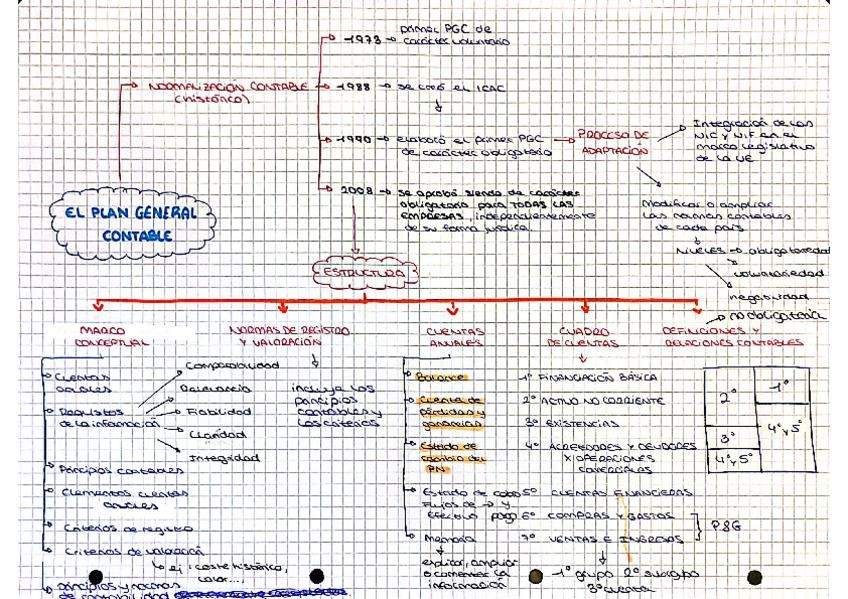 primer PGC de
-1973 → carácter voluntario
NORMALIZACIÓN CONTABLE
(histórico)
-1988 → se creó el ICAC
-1990 → elaboró el primer PGC
de carácter obligatorio
PROCESO DE
ADAPTACIÓN
Integración de las
NIC y NIF en el
marco legislativo
de la UE
2008 → se aprobó siendo de carácter
obligatorio para TODAS LAS
EMPRESAS, independientemente
de su forma jurídica.
Modificar o ampliar
las normas contables
de cada país
NIVELES → obligatoriedad
voluntariedad
no obligatoria
EL PLAN GENERAL
CONTABLE
ESTRUCTURA
MARCO
CONCEPTUAL
Cuentas
anuales
Requisitos
de la información
Comparabilidad
Relevancia
Fiabilidad
Claridad
Integridad
Principios contables
Elementos cuentas
anuales
Criterios de registro
Criterios de valoración
ej: coste histórico,
valor...
principios y normas
de contabilidad
NORMAS DE REGISTRO
Y VALORACIÓN
incluye los
principios
contables y
los criterios
CUENTAS
ANUALES
Balance
Cuenta de
pérdidas y
ganancias
Estado de
cambio del
PN
Estado de cobo
Flujos de → y
Efectivo pago
Memoria
explicar, ampliar
o comentar la
información
CUADRO
DE CUENTAS
1º FINANCIACIÓN BÁSICA
2º ACTIVO NO CORRIENTE
3º EXISTENCIAS
4º ACREEDORES Y DEUDORES
X OPERACIONES
COMERCIALES
5º CUENTAS FINANCIERAS
6º COMPRAS Y GASTOS
7º VENTAS E INGRESOS
P&G
-1º grupo 2º subgrupo
3º cuenta
DEFINICIONES Y
RELACIONES CONTABLES
2º
-1º
3º
4º y 5º
4º y 5º